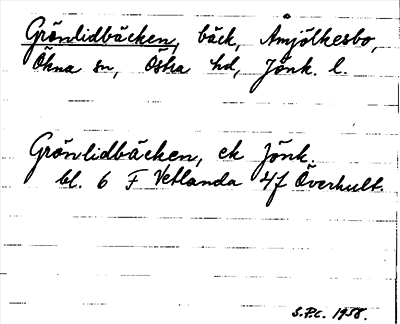 Grönlidbäcken, bäck, Åmjölkesbo,
Ökna sn, Östra hd, Jönk. l.
Grönlidbäcken, ek Jönk.
bl. 6 F Vetlanda 4f Överhult.
S.P.C. 1958.